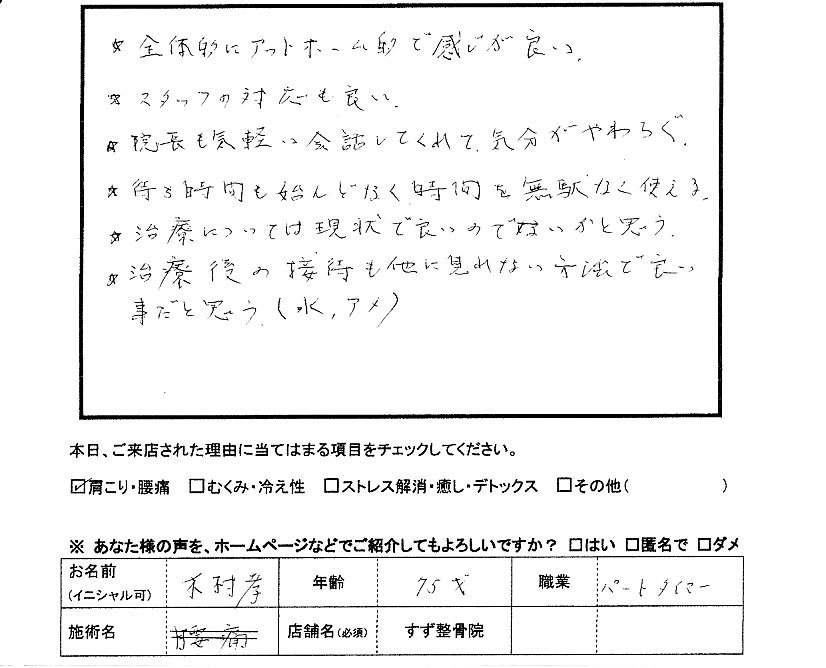 ☆ 全体的にアットホーム的で感じが良い.
☆ スタッフの対応も良い.
☆ 院長も気軽い会話してくれて、気分がやわらぐ.
☆ 待ち時間も始んどなく時間を無駄なく使える.
☆ 治療については現状で良いのでないかと思う.
☆ 治療後の接待も他に見れない方法で良い
事だと思う.(水,アメ)
本日、ご来店された理由に当てはまる項目をチェックしてください。
☑肩こり・腰痛 □むくみ・冷え性 □ストレス解消・癒し・デトックス □その他( )
※ あなた様の声を、ホームページなどでご紹介してもよろしいですか? □はい □匿名で □ダメ
お名前 (イニシャル可) 木村孝 年齢 75才 職業 パートタイマー
施術名 腰痛 店舗名(必須) すず整骨院